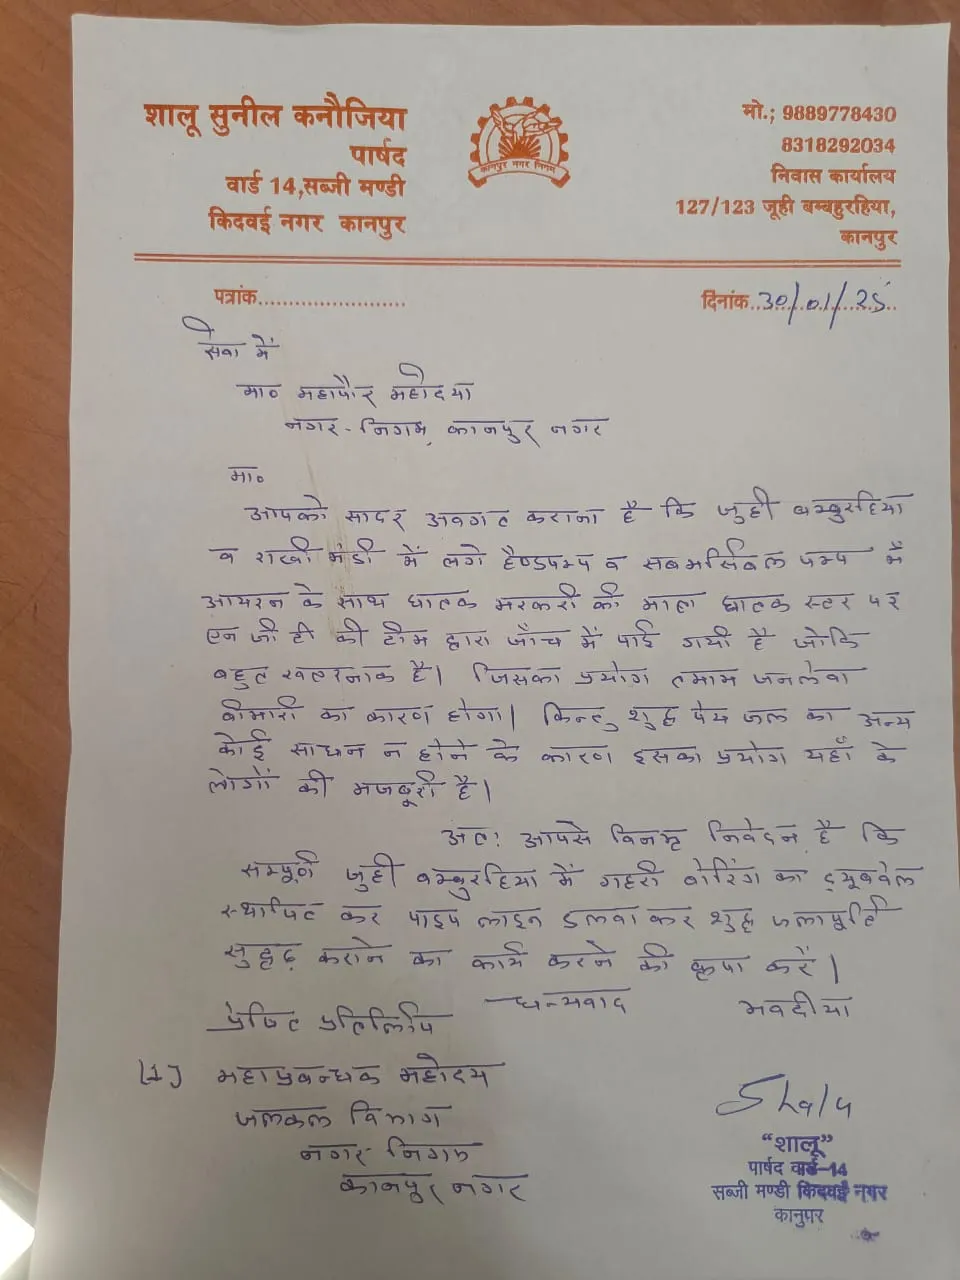 शालू सुनील कनौजिया
पार्षद
वार्ड 14,सब्जी मण्डी
किदवई नगर कानपुर
कानपुर नगर निगम
मो.; 9889778430
8318292034
निवास कार्यालय
127/123 जूही बम्बहुरहिया,
कानपुर
पत्रांक......................
दिनांक..30/01/25
सेवा में
मा० महापौर महोदया
नगर-निगम, कानपुर नगर
मा०
आपको सादर अवगत कराना है कि जुही बम्बुरहिया
व राखी मंडी में लगे हैण्डपम्प व सबमर्सिबल पम्प में
आयरन के साथ घातक मरकरी की मात्रा घातक स्तर पर
एन जी टी की टीम द्वारा जाँच में पाई गयी है जोकि
बहुत खतरनाक है। जिसका प्रयोग तमाम जनलेवा
बीमारी का कारण होगा। किन्तु शुद्ध पेय जल का अन्य
कोई साधन न होने के कारण इसका प्रयोग यहाँ के
लोगों की मजबूरी है।
अतः आपसे विनम्र निवेदन है कि
सम्पूर्ण जुही बम्बुरहिया में गहरी बोरिंग का ट्यूबवेल
स्थापित कर पाइप लाइन डलवा कर शुद्ध जलापूर्ति
सुदृढ़ कराने का कार्य करने की कृपा करें।
धन्यवाद भवदीया
प्रेषित प्रतिलिपि
(1) महाप्रबन्धक महोदय
जलकल विभाग
नगर निगम
कानपुर नगर
Shalu
“शालू”
पार्षद वार्ड-14
सब्जी मण्डी किदवई नगर
कानुपर